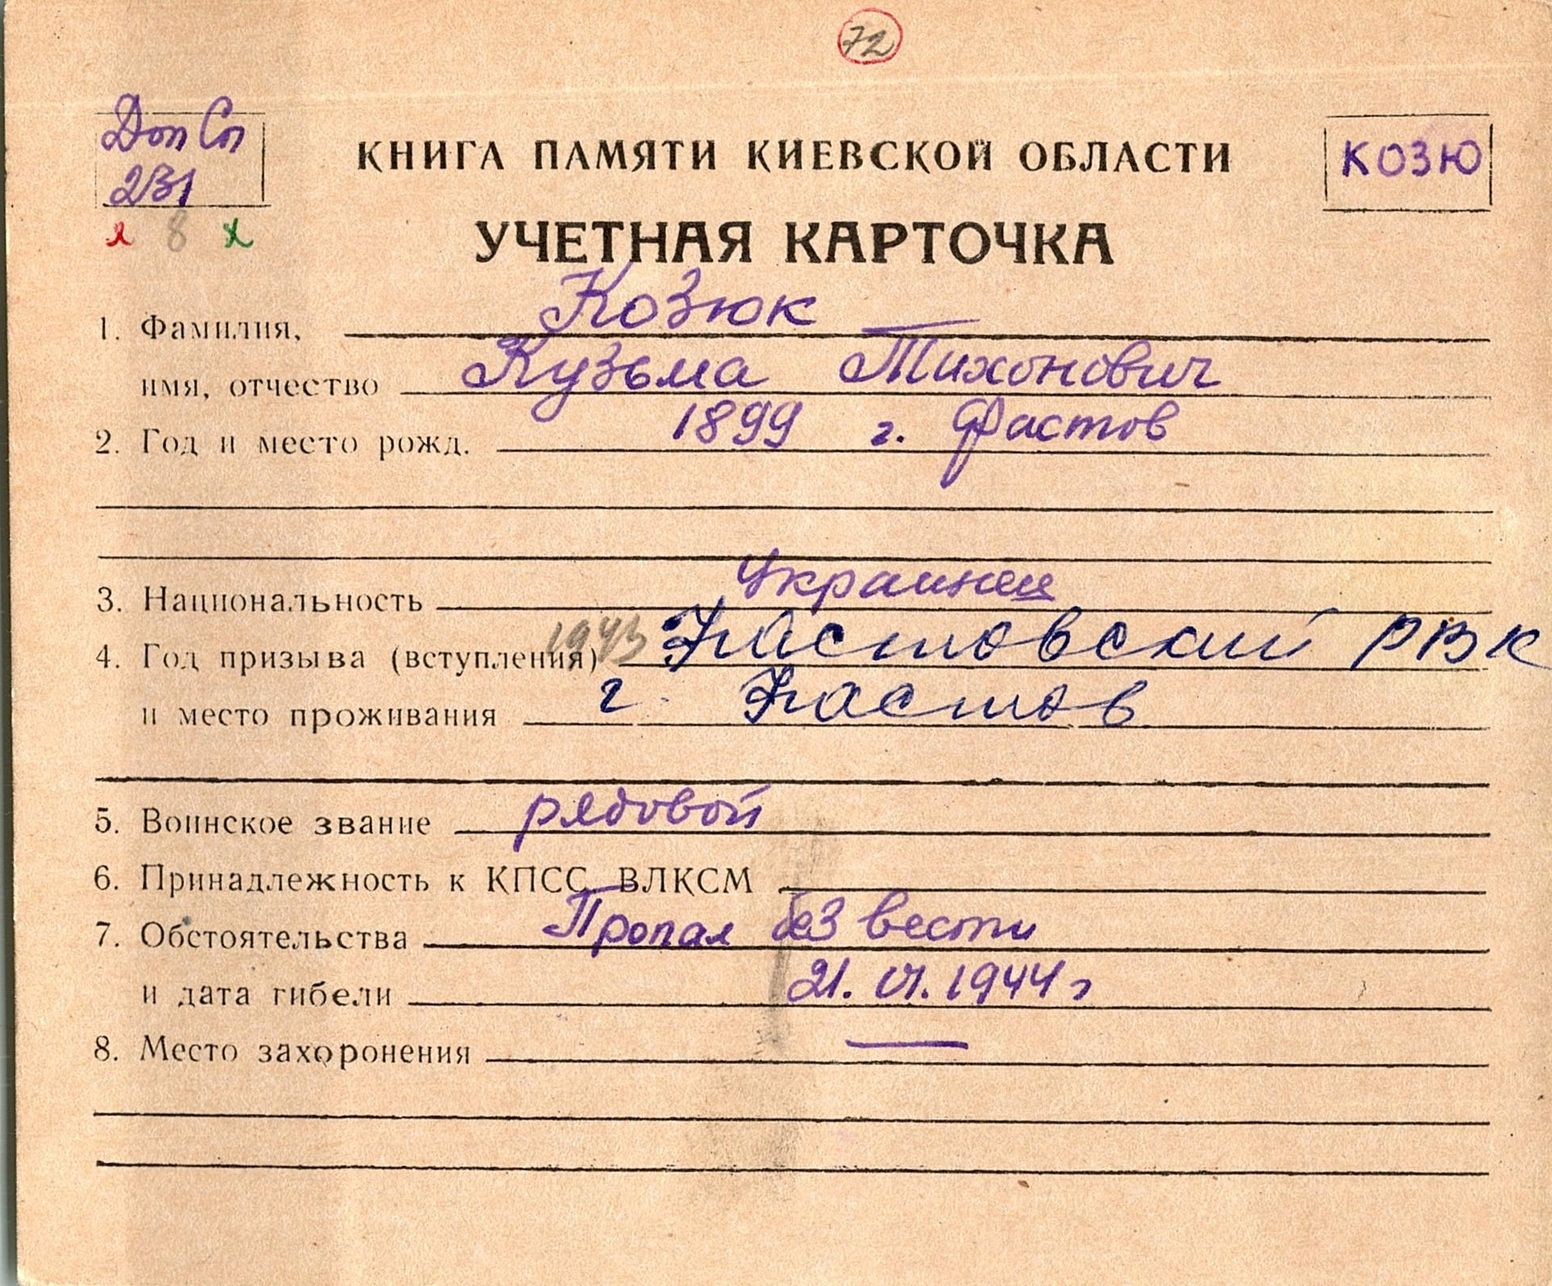 72
Доп Сп
231
КНИГА ПАМЯТИ КИЕВСКОЙ ОБЛАСТИ
КОЗЮ
л 8 х
УЧЕТНАЯ КАРТОЧКА
1. Фамилия, Козюк
имя, отчество Кузьма Тихонович
2. Год и место рожд. 1899 г. Фастов
3. Национальность Украинец
4. Год призыва (вступления) 1943 Фастовский РВК
и место проживания г. Фастов
5. Воинское звание рядовой
6. Принадлежность к КПСС, ВЛКСМ
7. Обстоятельства Пропал без вести
и дата гибели 21. VI. 1944 г
8. Место захоронения —